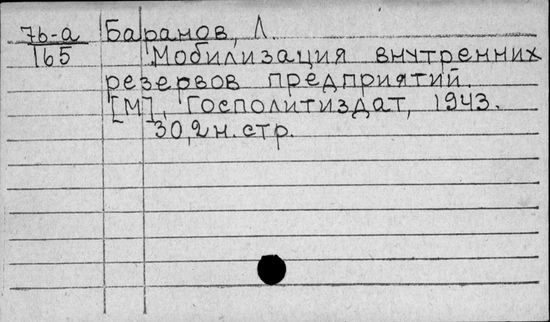 76-а Баранов, Л.
165 Мобилизация внутренних
резервов предприятий.
[М], Госполитиздат, 1943.
30,2 н. стр.